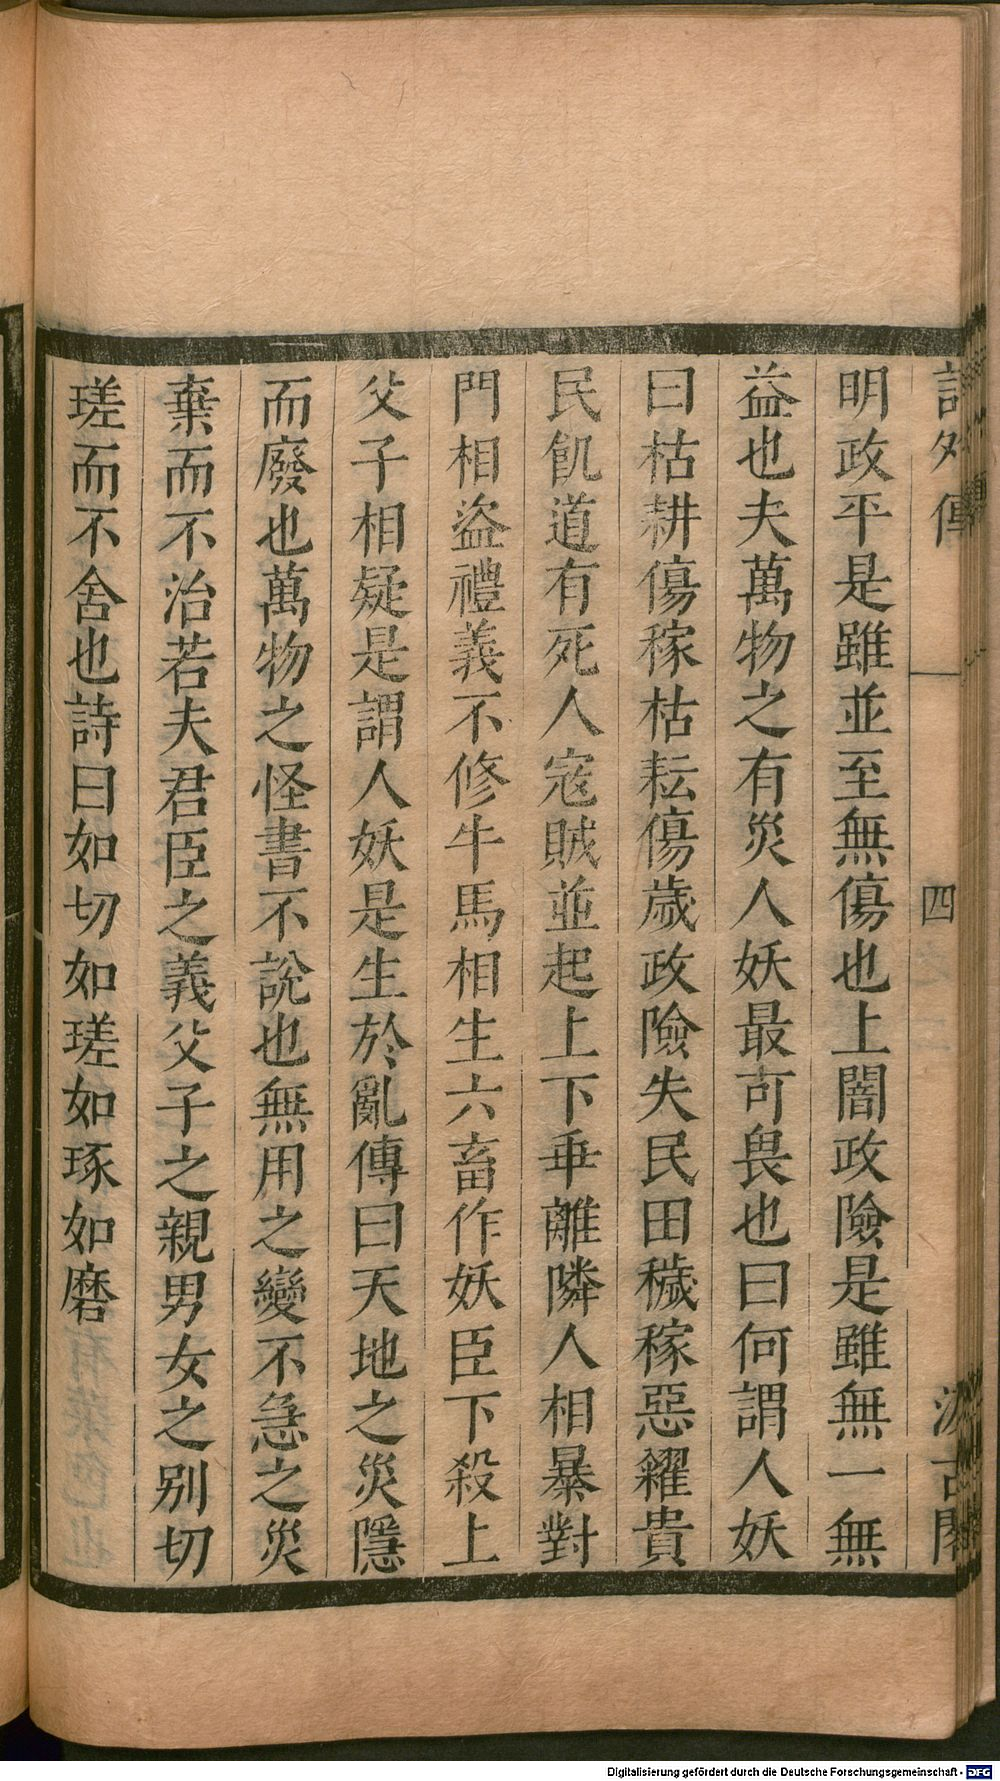 詩外傳 四 汲古閣
明政平是雖並至無傷也上闇政險是雖無一無
益也夫萬物之有災人妖最可畏也曰何謂人妖
曰枯耕傷稼枯耘傷歲政險失民田穢稼惡糴貴
民飢道有死人寇賊並起上下乖離隣人相暴對
門相盜禮義不修牛馬相生六畜作妖臣下殺上
父子相疑是謂人妖是生於亂傳曰天地之災隱
而廢也萬物之怪書不說也無用之變不急之災
棄而不治若夫君臣之義父子之親男女之别切
瑳而不舍也詩曰如切如瑳如琢如磨
Digitalisierung gefördert durch die Deutsche Forschungsgemeinschaft - DFG